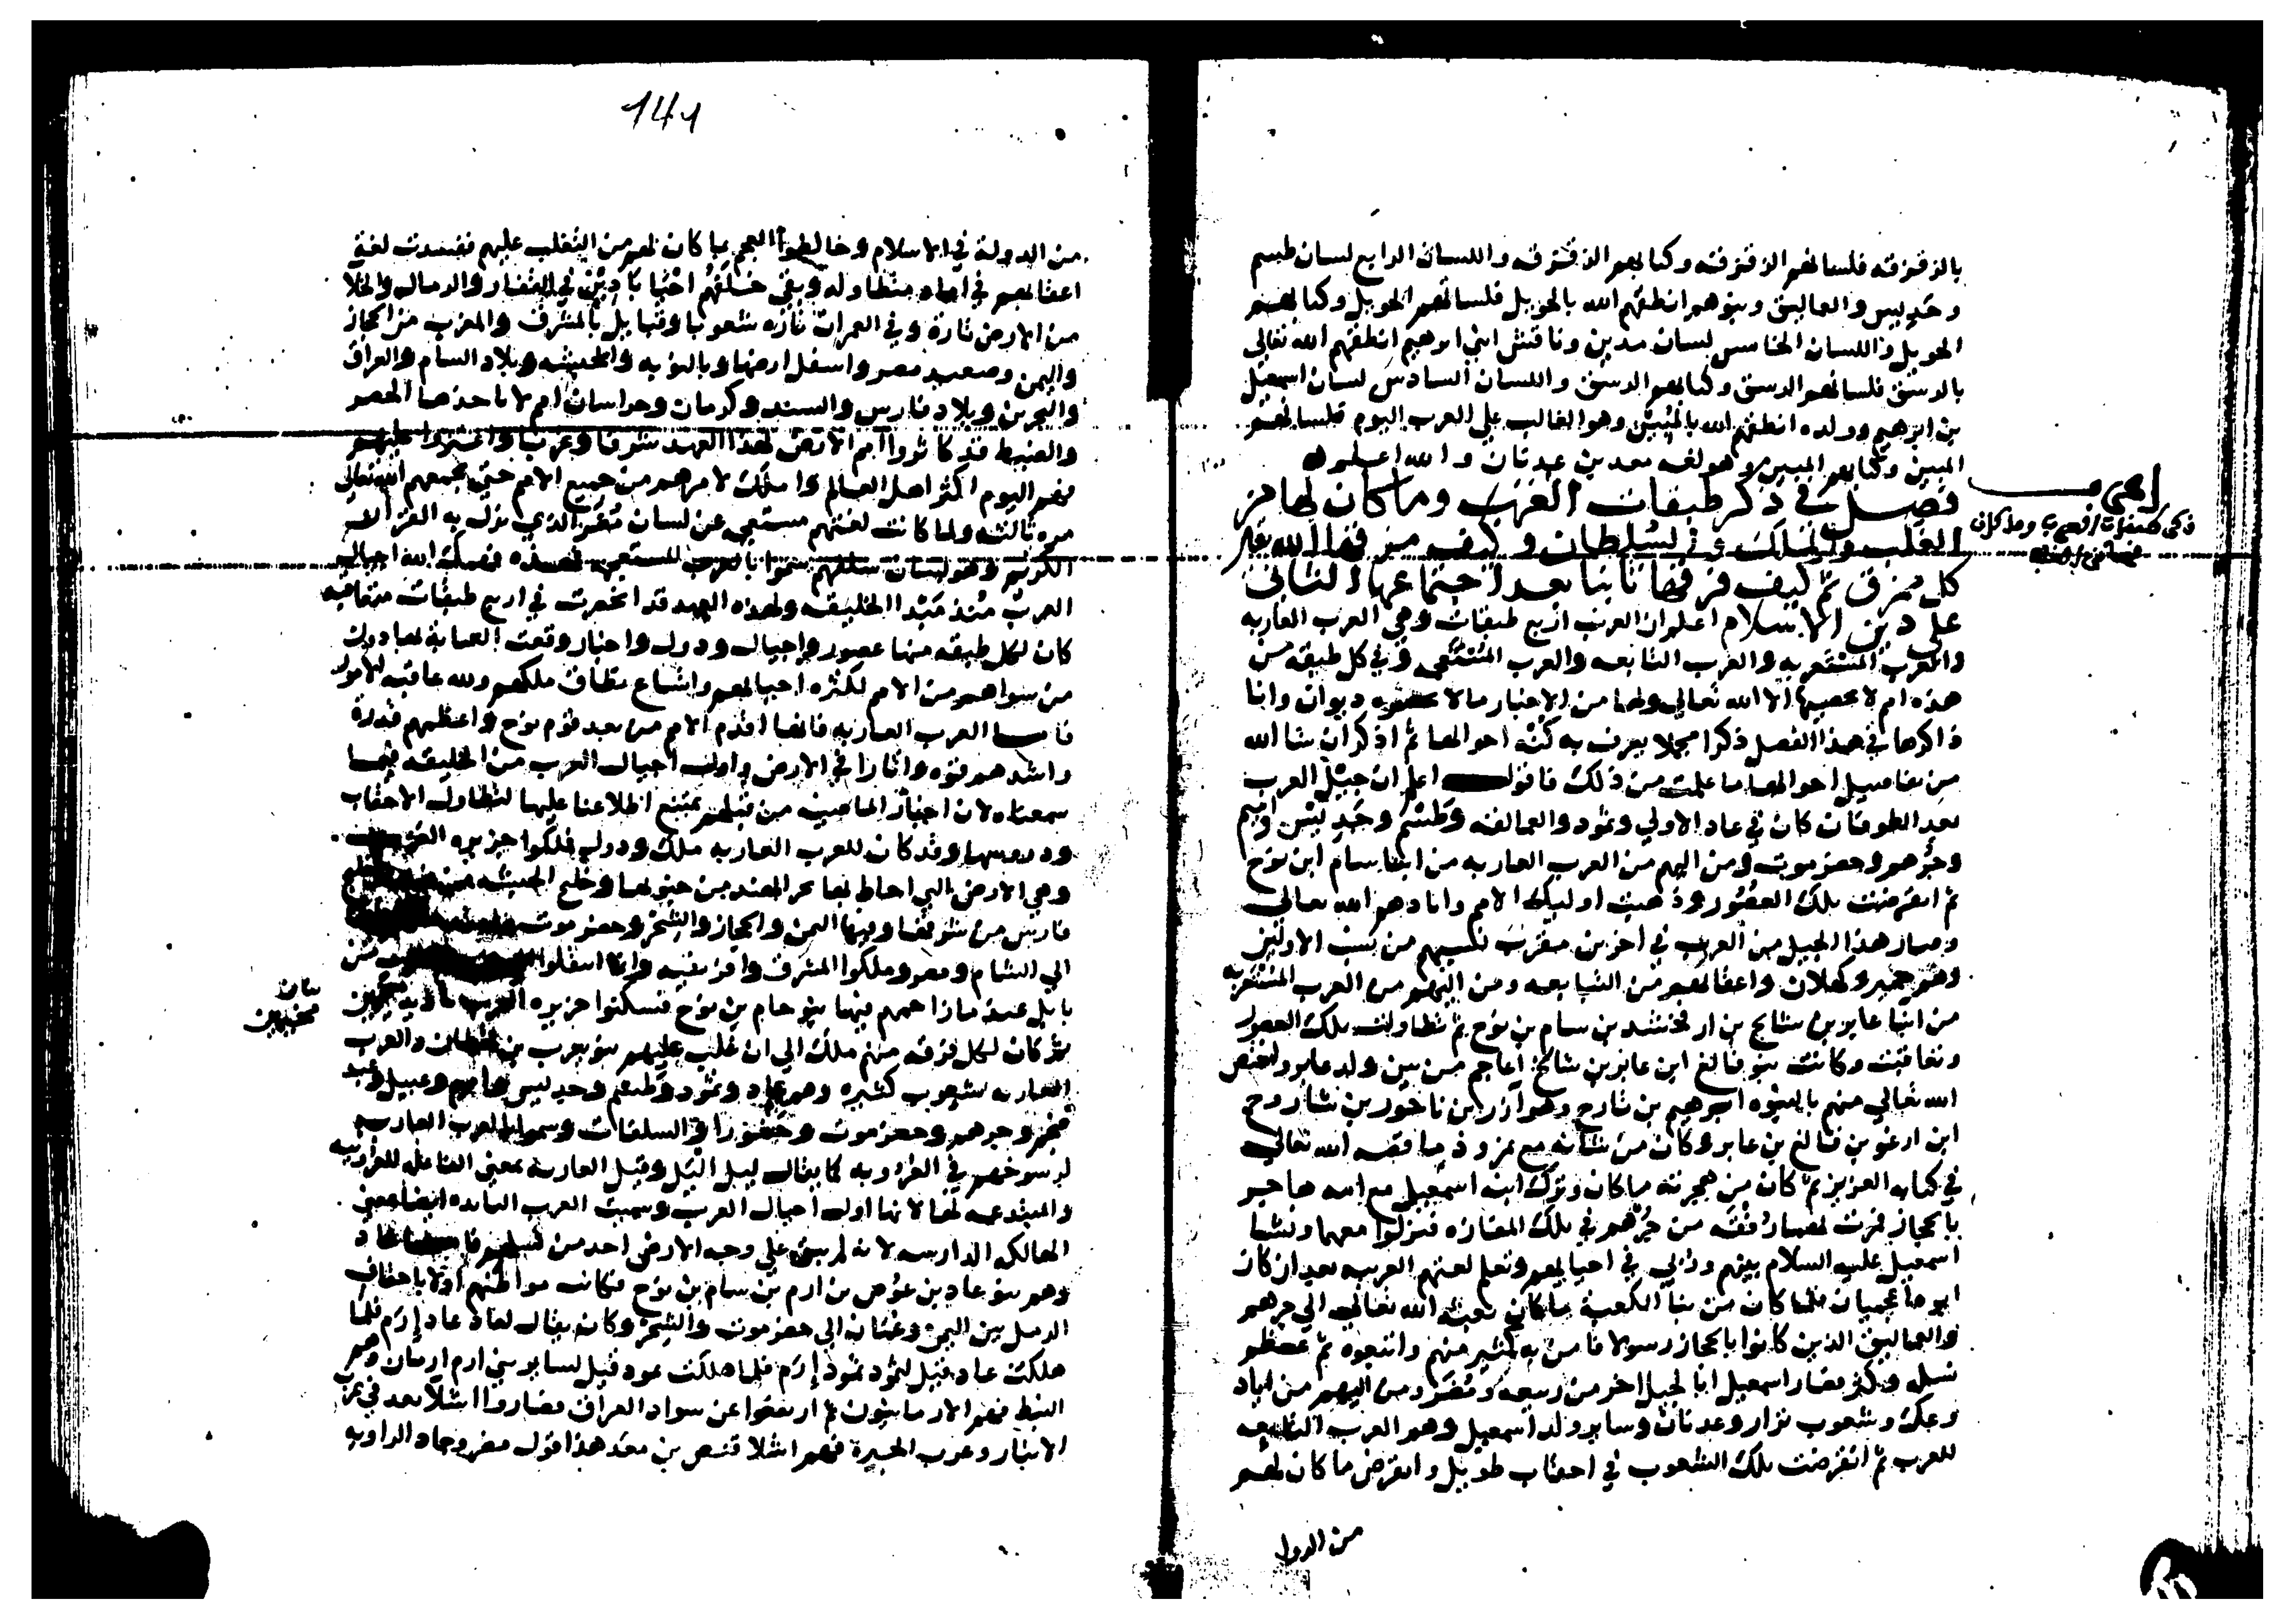 بالزقزقه فلسانهم الزقزقه وكتابهم الزقزقه واللسان الرابع لسان طسم
وجديس والعماليق وبنوهم انطقهم الله بالحويل فلسانهم الحويل وكتابهم
الحويل واللسان الخامس لسان مدين ونافتش ابني ابرهيم انطقهم الله تعالى
بالرشق فلسانهم الرشق وكتابهم الرشق واللسان السادس لسان اسمعيل
بن ابرهيم وولده انطقهم الله بالمبين وهو الغالب على العرب اليوم فلسانهم
المبين وكتابهم المبين وهو لغه معد بن عدنان والله اعلم
فصل في ذكر طبقات العرب وما كان لها من
الغلب والملك والسلطان وكيف مزقها الله
كل ممزق ثم كيف فرقها ثانيا بعد اجتماعها الثاني
على دين الاسلام اعلم ان العرب اربع طبقات وهي العرب العاربه
والعرب المستعربه والعرب التابعه والعرب المستعجمه وفي كل طبقه من
هذه امم لا يحصيها الا الله تعالى ولها من الاخبار مالا ديوان وانا
ذاكرها في هذا الفصل ذكرا مجملا يعرف به كنه احوالها ثم اذكر ان شا الله
من تفاصيل احوالها ما علمت من ذلك فاقول اعلم ان جيل العرب
بعد الطوفان كان في عاد الاولي وثمود والعمالقه وطسم وجديس واميم
وجرهم وحضرموت ومن اليهم من العرب العاربه من ابنا سام ابن نوح
ثم انقرضت تلك العصور وذهبت اوليك الامم وابادهم الله تعالى
وصار هذا الجيل من العرب في اخرين ممن قرب نسبهم من نسب الاولين
وهم حمير وكهلان واعقابهم من التبابعه ومن اليهم من العرب المستعربه
من ابنا عابر بن شالخ بن ارفخشد بن سام بن نوح ثم تطاولت تلك العصور
وتعاقبت وكانت بنو فالغ ابن عابر بن شالخ اعاجم من بين ولد عابر واختص
الله تعالي منهم بالنبوه ابرهيم بن تارح وهو آزر بن ناحور بن شاروح
ابن ارغو بن فالغ بن عابر وكان من شانه مع نمروذ ما قصه الله تعالى
في كتابه العزيز ثم كان من هجرته ما كان وترك ابنه اسمعيل مع امه هاجر
بالحجاز فمرت بهما رفقه من جرهم في تلك المفازه فنزلوا معهما ونشا
اسمعيل عليه السلام بينهم وربي في احيايهم وتعلم لغتهم العربيه بعد ان كان
ابوه اعجميا ثم لما كان من بنا الكعبة ما كان بعثه الله تعالى الي جرهم
والعماليق الذين كانوا بالحجاز رسولا فامن به كثير منهم واتبعوه ثم عظم
نسله وكثر فصار اسمعيل ابا لجيل اخر من ربيعه ومضر ومن اليهم من اياد
وعك وشعوب نزار وعدنان وساير ولد اسمعيل وهم العرب التابعه
للعرب ثم انقرضت تلك الشعوب في احقاب طويل وانقرض ما كان لهم
من الدول
141
من الدولة في الاسلام وخالطوا العجم بما كان لهم من التغلب عليهم ففسدت لغه
اعقابهم في اماد متطاوله وبقي خلفهم احيا بادين في القفار والرمال والخلا
من الارض تارة وفي العمران تاره شعوبا وقبايل بالمشرق والمغرب من الحجاز
واليمن وصعيد مصر واسفل ارضها وبالنوبه والحبشه وبلاد الشام والعراق
والبحرين وبلاد فارس والسند وكرمان وخراسان امم لا ياخذها الحصر
والضبط قد كاثروا امم الارض لهذا العهد شرقا وغربا واعتزوا عليهم
فهم اليوم اكثر اهل العالم واملك لامرهم من جميع الامم حتى يجمعهم الله تعالى
مره ثالثه ولما كانت لغتهم مستعجمه عن لسان مضر الذي نزل به القران
الكريم وهو لسان سلفهم سموا بالعرب المستعجمه فهذه فصلت الله اجيال
العرب منذ مبدا الخليقه ولهذه العهد قد انحصرت في اربع طبقات متعاقبه
كان لكل طبقه منها عصور واجيال ودول واخبار وقعت العنايه لها دون
من سواهم من الامم لكثره اجيالهم واتساع نطاق ملكهم ولله عاقبه الامور
فاما العرب العاربه فانها اقدم الامم من بعد قوم نوح واعظمهم قدرة
واشدهم قوه واثارا في الارض واول اجيال العرب من الخليقه فيما
سمعناه لان اخبار الماضيه من قبلهم يمتنع اطلاعنا عليها لتطاول الاحقاب
ودروسها وقد كان للعرب العاربه ملك ودول فملكوا جزيره العرب
وهي الارض التي احاط بها بحر الهند من جنوبها وخليج الحبشه من
فارس من شرقها وفيها اليمن والحجاز والشحر وحضرموت
الي الشام ومصر وملكوا المشرق وافريقيه وانما انتقلوا
بابل عند ما زاحمهم فيها بنو حام بن نوح فسكنوا جزيره العرب باديه مخيمين
ثم كان لكل فرقه منهم ملك الي ان غلب عليهم بنو يعرب بن قحطان والعرب
العاربه شعوب كثيره وهم عاد وثمود وطسم وجديس واميم وعبيل وعبد
ضخم وجرهم وحضرموت وحضورا والسلفات وسموا العرب العاربه
لرسوخهم في العروبيه كما يقال ليل اليل وقيل العاربه بمعنى الفاعله للعروبيه
والمبتدعه لها لانها اول اجيال العرب وسميت العرب البايده ايضا بمعنى
الهالكه الدارسه لانه لم يبق على وجه الارض احد من نسلهم فاما عاد
وهم بنو عاد بن عوص بن ارم بن سام بن نوح فكانت مواطنهم اولا باحقاف
الرمل بين اليمن وعمان الي حضرموت والشحر وكان يقال لعاد عاد إرم فلما
هلكت عاد قيل لثمود ثمود إرم فلما هلكت ثمود قيل لساير بني ارم ارمان وهم
النبط فهم الارمانيون ثم ارتفعوا عن سواد العراق فصاروا اشلا بعد في
الانبار وعرب الحيرة فهم اشلا قنص بن معد هذا قول مضر وحماد الراويه